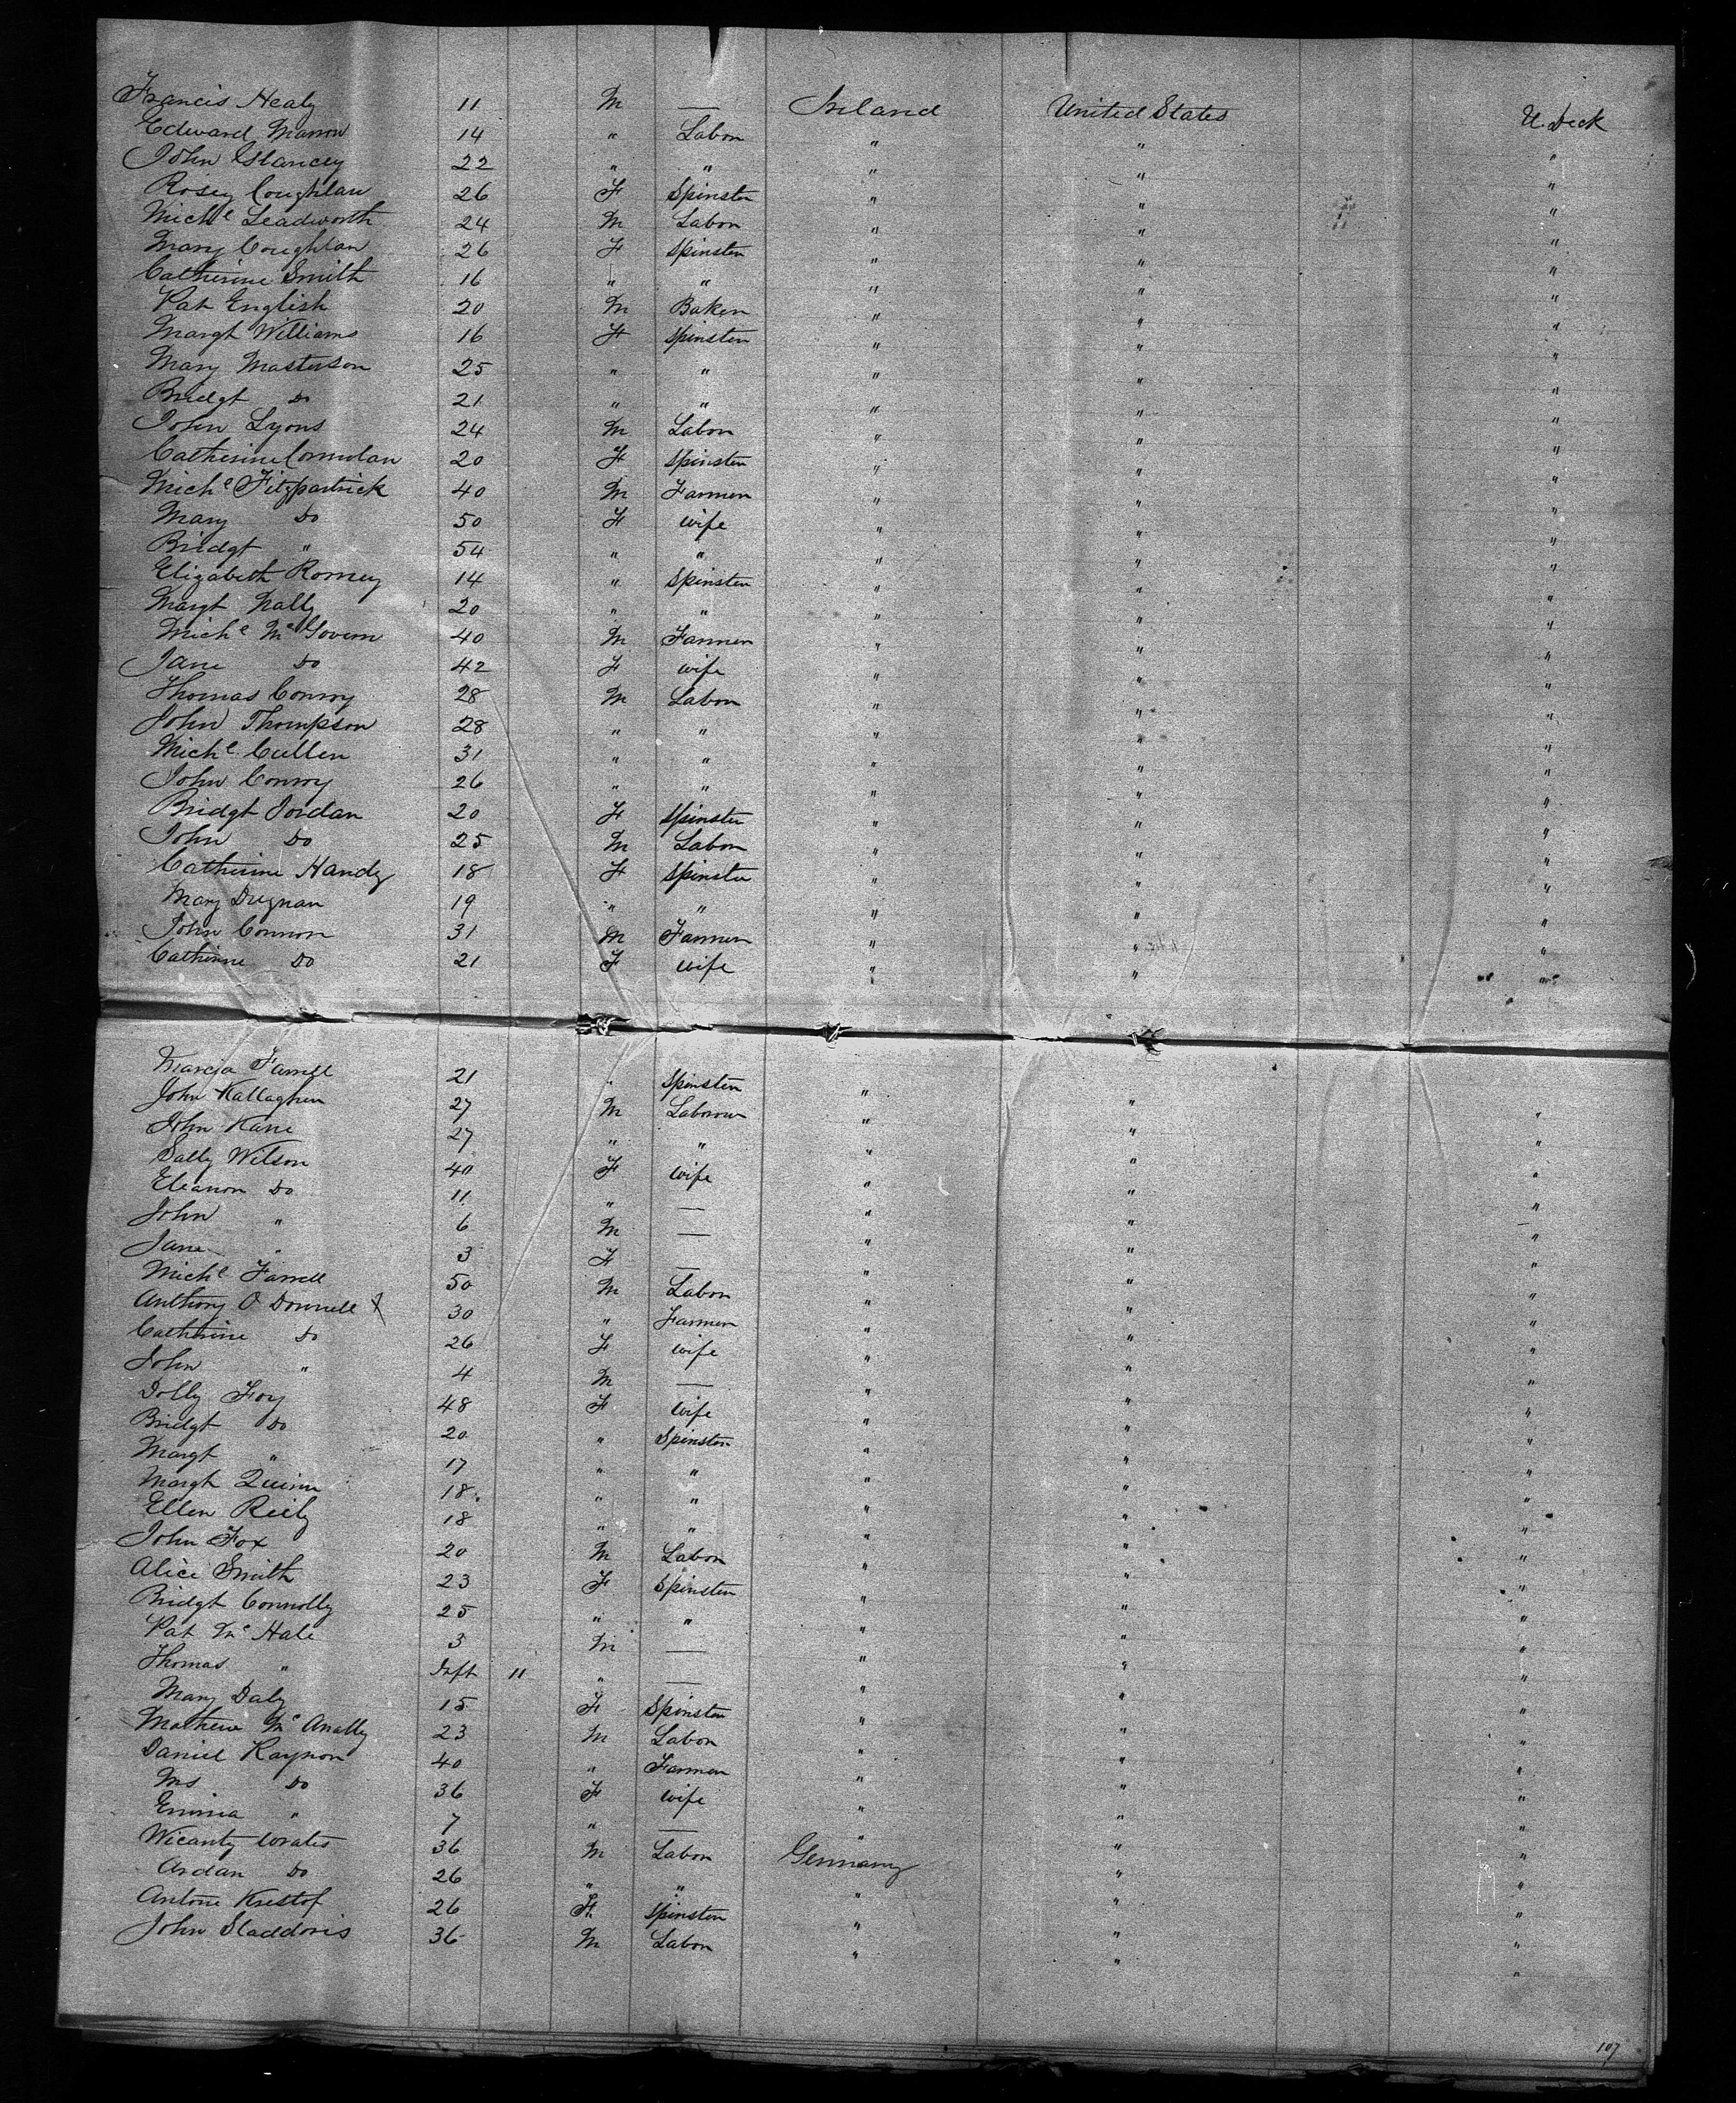 Francis Healy 11 M — Ireland United States U. Deck
Edward Marron 14 " Labor " " "
John Glancey 22 " " " " "
Rosey Coughlan 26 F Spinster " " "
Michl Leadworth 24 M Labor " " "
Mary Coughlan 26 F Spinster " " "
Catherine Smith 16 " " " " "
Pat English 20 M Baker " " "
Margt Williams 16 F Spinster " " "
Mary Masterson 25 " " " " "
Bridgt Do 21 " " " " "
John Lyons 24 M Labor " " "
Catherine 20 F Spinster " " "
Michl Fitzpatrick 40 M Farmer " " "
Mary Do 50 F wife " " "
Bridgt " 54 " " " " "
Elizabeth Romey 14 " Spinster " " "
Margt Nally 20 " " " " "
Michl McGovern 40 M Farmer " " "
Jane Do 42 F wife " " "
Thomas Conroy 28 M Labor " " "
John Thompson 28 " " " " "
Michl Cullen 31 " " " " "
John Conroy 26 " " " " "
Bridgt Jordan 20 F Spinster " " "
John Do 25 M Labor " " "
Catherine Handy 18 F Spinster " " "
Mary Duignan 19 " " " " "
John Connor 31 M Farmer " " "
Catherine Do 21 F wife " " "
Farrell 21 " Spinster " "
John Kallaghen 27 M Laborour " " "
John Kane 27 " " " " "
Sally Wilson 40 F wife " " "
Eleanor Do 11 " — " " "
John " 6 M — " " "
Jane " 3 F — " " "
Michl Farrell 50 M Labor " " "
Anthony O Donnell 30 " Farmer " " "
Catherine Do 26 F wife " " "
John " 4 M — " " "
Dolly Foy 48 F wife " " "
Bridgt Do 20 " Spinster " " "
Margt " 17 " " " " "
Margt Quinn 18 " " " " "
Ellen Reily 18 " " " " "
John Fox 20 M Labor " " "
Alice Smith 23 F Spinster " " "
Bridgt Connolly 25 " " " " "
Pat Mc Hale 3 M — " " "
Thomas " Inft 11 " — " " "
Mary Daly 15 F Spinster " " "
Mathew Mc Anally 23 M Labor " " "
Daniel Raynor 40 " Farmer " " "
Ms Do 36 F wife " " "
Emma " 7 " — " " "
36 M Labor Germany " "
Ardan Do 26 " " " " "
Antone Kristof 26 F Spinster " " "
John Sladdoris 36 M Labor " " "
107